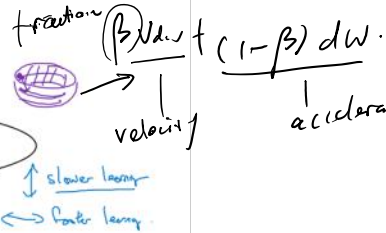 friction
β Vdw + (1-β) dw.
velocity
accelera
↕ slower learning
↔ faster learning.